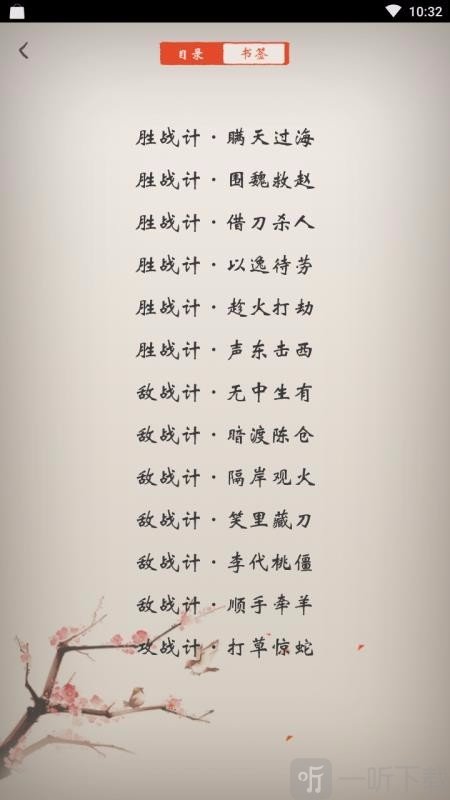 10:32
目录 书签
胜战计·瞒天过海
胜战计·围魏救赵
胜战计·借刀杀人
胜战计·以逸待劳
胜战计·趁火打劫
胜战计·声东击西
敌战计·无中生有
敌战计·暗渡陈仓
敌战计·隔岸观火
敌战计·笑里藏刀
敌战计·李代桃僵
敌战计·顺手牵羊
攻战计·打草惊蛇
听 一听下载